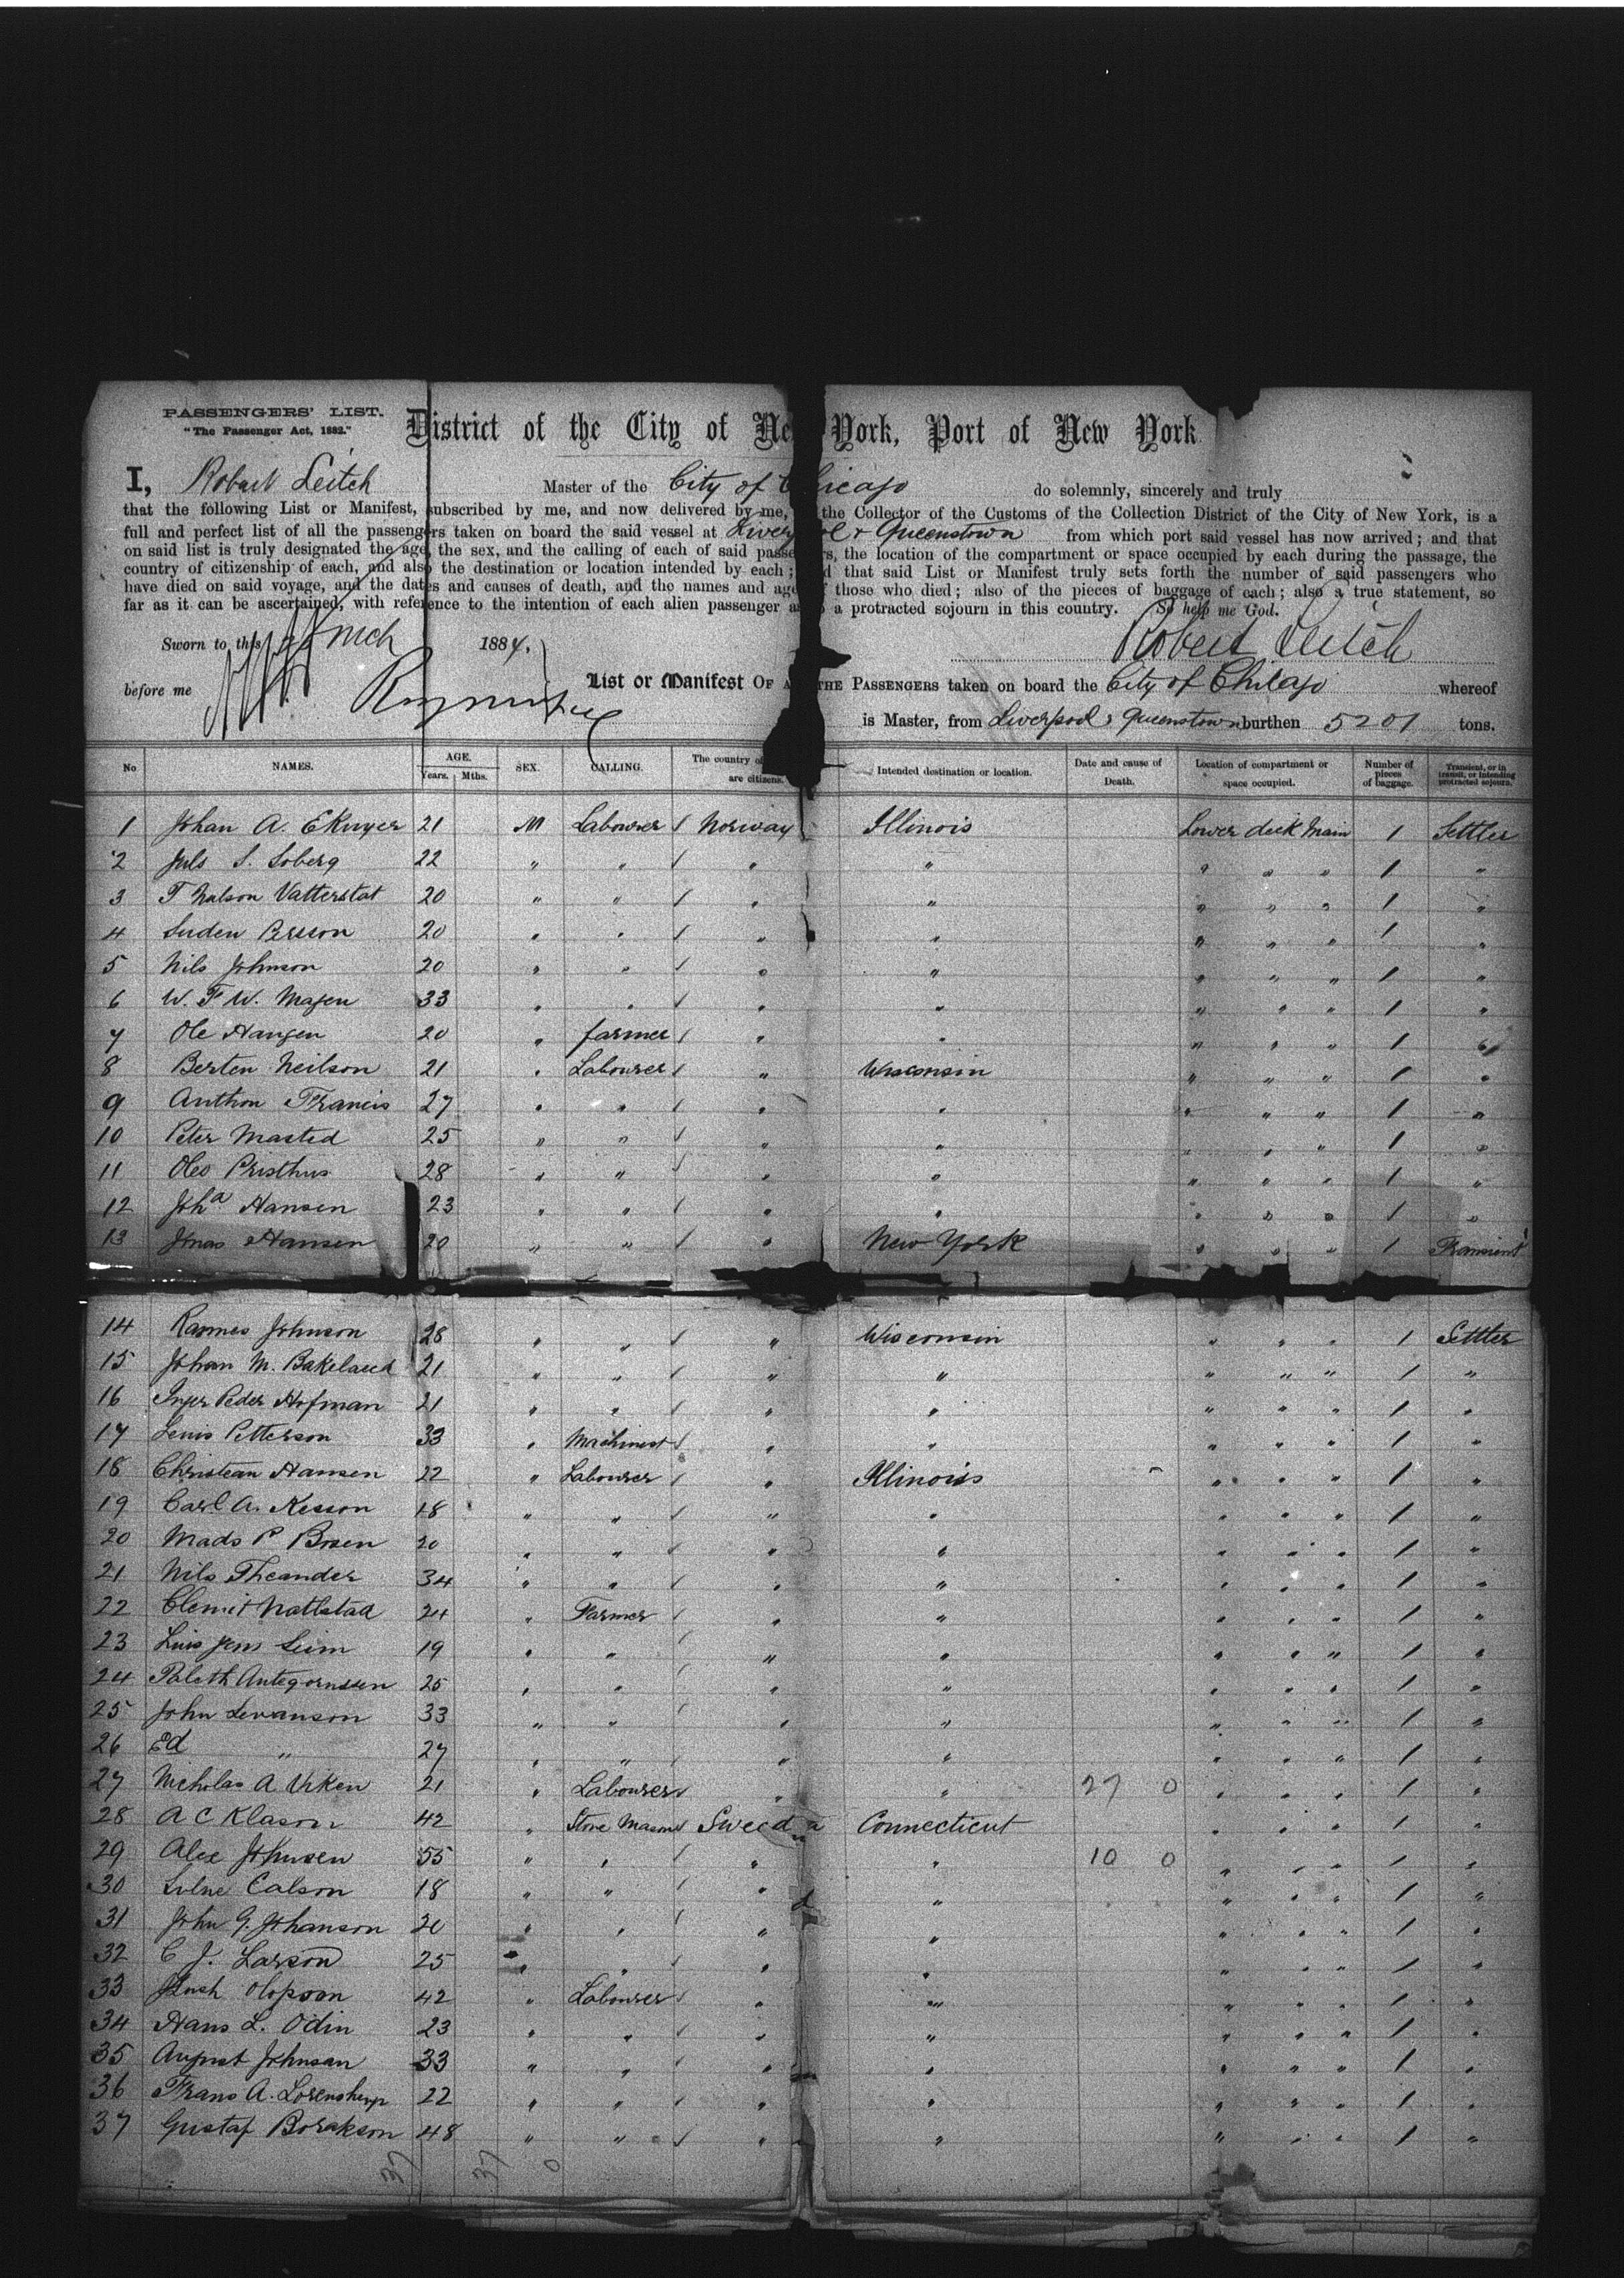 PASSENGERS' LIST.
"The Passenger Act, 1882."
District of the City of New York, Port of New York
I, Robert Leitch Master of the City of Chicago do solemnly, sincerely and truly
that the following List or Manifest, subscribed by me, and now delivered by me, the Collector of the Customs of the Collection District of the City of New York, is a
full and perfect list of all the passengers taken on board the said vessel at Liverpool & Queenstown from which port said vessel has now arrived; and that
on said list is truly designated the age, the sex, and the calling of each of said passengers, the location of the compartment or space occupied by each during the passage, the
country of citizenship of each, and also the destination or location intended by each; and that said List or Manifest truly sets forth the number of said passengers who
have died on said voyage, and the dates and causes of death, and the names and ages of those who died; also of the pieces of baggage of each; also a true statement, so
far as it can be ascertained, with reference to the intention of each alien passenger as to a protracted sojourn in this country. So help me God.
Sworn to this Mch 1884.
Robert Leitch
before me
List or Manifest OF ALL THE PASSENGERS taken on board the City of Chicago whereof
is Master, from Liverpool & Queenstown burthen 5201 tons.
No NAMES. AGE. Years. Mths. SEX. CALLING. The country of are citizens. Intended destination or location. Date and cause of Death. Location of compartment or space occupied. Number of pieces of baggage. Transient, or in transit, or intending protracted sojourn.
1 Johan A. 21 M Labourer Norway Illinois Lower deck Main 1 Settler
2 Juls S. Soberg 22 " " " " " " " 1 "
3 T Nalson Vatterstat 20 " " " " " " " 1 "
4 Persson 20 " " " " " " " 1 "
5 Nils Johnson 20 " " " " " " " 1 "
6 W. F W. Magen 33 " " " " " " " 1 "
7 Ole Hangen 20 " farmer " " " " " 1 "
8 Berten Neilson 21 " Labourer " Wisconsin " " " 1 "
9 Anthon Francis 27 " " " " " " " 1 "
10 Peter Masted 25 " " " " " " " 1 "
11 Oleo Pristhus 28 " " " " " " " 1 "
12 Joha Hansen 23 " " " " " " " 1 "
13 Jonas Hansen 20 " " " New York " " " 1 Transient
14 Rasmes Johnson 28 " " " Wisconsin " " " 1 Settler
15 Johan M. Bakelaed 21 " " " " " " " 1 "
16 Inger Peder Hofman 21 " " " " " " " 1 "
17 Lenis Petterson 33 " Machinest " " " " " 1 "
18 Christean Hansen 22 " Labourer " Illinois " " " 1 "
19 Carl A. Kesson 18 " " " " " " " 1 "
20 Mads P Bosen 20 " " " " " " " 1 "
21 Nils Theander 34 " " " " " " " 1 "
22 Clemit Nattstad 24 " Farmer " " " " " 1 "
23 Luis Jens Seim 19 " " " " " " " 1 "
24 25 " " " " " " " 1 "
25 John Levanson 33 " " " " " " " 1 "
26 Ed " 27 " " " " " " " 1 "
27 Nicholas A Urken 21 " Labourer " " 27 0 " " " 1 "
28 A C Klason 42 " Stone Mason Sweeden Connecticut " " " 1 "
29 Alex Johnsen 55 " " " " 10 0 " " " 1 "
30 Calson 18 " " " " " " " 1 "
31 John G. Johanson 20 " " " " " " " 1 "
32 C J. Larson 25 " " " " " " " 1 "
33 Olopson 42 " Labourer " " " " " 1 "
34 Hans L. Odin 23 " " " " " " " 1 "
35 August Johnsan 33 " " " " " " " 1 "
36 Frans A. 22 " " " " " " " 1 "
37 Gustaf Borakson 48 " " " " " " " 1 "
37 37 0